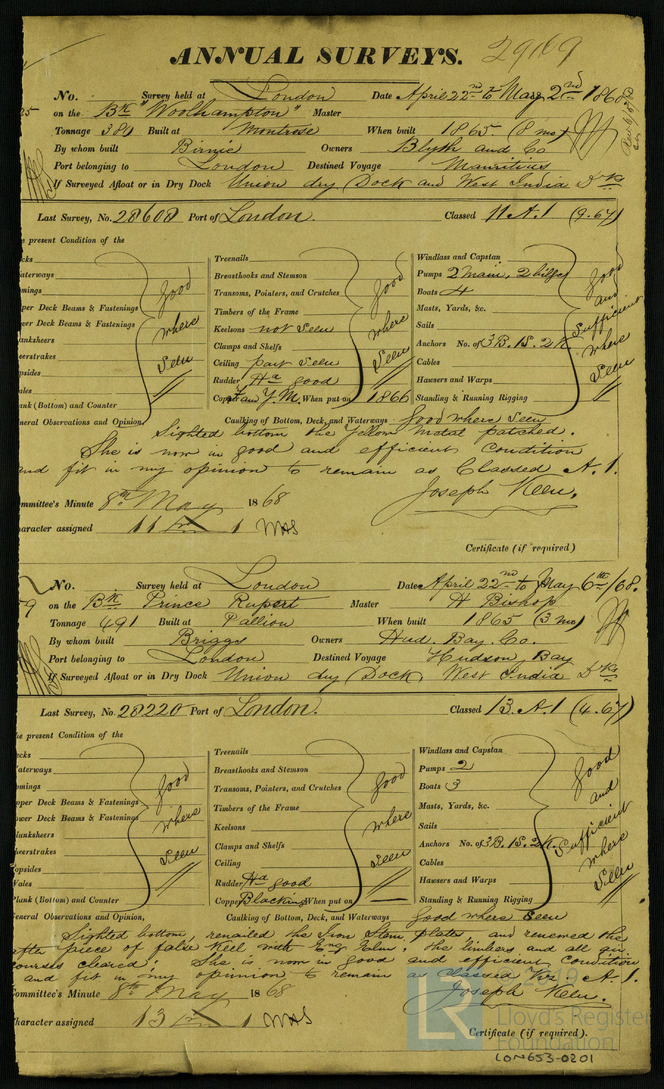 ANNUAL SURVEYS. 29109
No. Survey held at London Date April 22nd to May 2nd 1868
on the Bk "Woolhampton" Master
Tonnage 380 Built at Montrose When built 1865 (8 mo)
By whom built Birnie Owners Blyth and Co
Port belonging to London Destined Voyage Mauritius
If Surveyed Afloat or in Dry Dock Union dry Dock and West India Dks
Last Survey, No. 28608 Port of London. Classed 11 A.1 (9.67)
present Condition of the
Treenails
Breasthooks and Stemson
Transoms, Pointers, and Crutches
Timbers of the Frame
Keelsons not seen
Clamps and Shelfs
Ceiling part seen
Rudder good
When put on 1866
good where seen
Windlass and Capstan
Pumps 2 main, 2 bilge
Boats 4
Masts, Yards, &c.
Sails
Anchors No. of 3B. 1S. 2K.
Cables
Hawsers and Warps
Standing & Running Rigging
good and sufficient where seen
per Deck Beams & Fastenings
wer Deck Beams & Fastenings
ank (Bottom) and Counter
good where seen
neral Observations and Opinion, Caulking of Bottom, Deck, and Waterways good where seen
Sighted bottom the yellow metal patched.
She is now in good and efficient condition
and fit in my opinion to remain as Classed A.1.
Joseph Keen.
ommittee's Minute 8th May 1868
haracter assigned 11 1
Certificate (if required)
No. Survey held at London Date April 22nd to May 6th/68.
on the Bk Prince Rupert Master H Bishop
Tonnage 491 Built at Pallion When built 1865 (3 mo)
By whom built Briggs Owners Hud. Bay. Co.
Port belonging to London Destined Voyage Hudson Bay
If Surveyed Afloat or in Dry Dock Union dry Dock, West India Dks
Last Survey, No. 28220 Port of London. Classed 13 A.1 (4.67)
present Condition of the
Treenails
Breasthooks and Stemson
Transoms, Pointers, and Crutches
Timbers of the Frame
Keelsons
Clamps and Shelfs
Ceiling
Rudder good
Copper Blacking When put on
good where seen
Windlass and Capstan
Pumps 2
Boats 3
Masts, Yards, &c.
Sails
Anchors No. of 3B. 1S. 2K.
Cables
Hawsers and Warps
Standing & Running Rigging
good and sufficient where seen
pper Deck Beams & Fastenings
ower Deck Beams & Fastenings
lank (Bottom) and Counter
good where seen
eneral Observations and Opinion, Caulking of Bottom, Deck, and Waterways good where seen
Sighted bottom, renailed the Iron Stem plates, and renewed the
after piece of false Keel with Eng Elm. the limbers and all air
courses cleared. She is now in good and efficient condition
and fit in my opinion to remain as classed A.1.
Joseph Keen.
ommittee's Minute 8th May 1868
haracter assigned 13 1
Certificate (if required).
LR 2019
Lloyd's Register
Foundation
LON653-0201